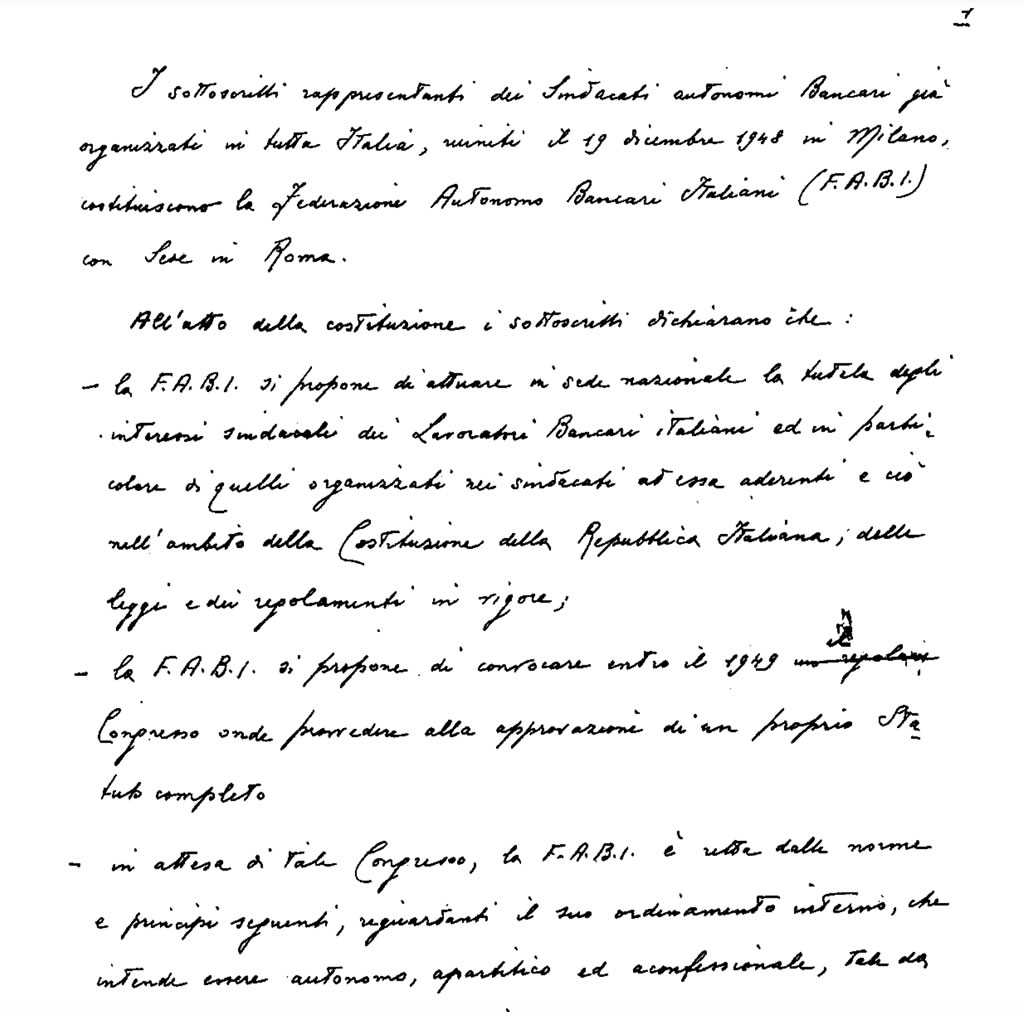 1
I sottoscritti rappresentanti dei Sindacati autonomi Bancari già
organizzati in tutta Italia, riuniti il 19 dicembre 1948 in Milano,
costituiscono la Federazione Autonomo Bancari Italiani (F.A.B.I.)
con Sede in Roma.
All'atto della costituzione i sottoscritti dichiarano che :
– la F.A.B.I. si propone di attuare in sede nazionale la tutela degli
interessi sindacali dei Lavoratori Bancari italiani ed in parti-
colare di quelli organizzati nei sindacati ad essa aderenti e ciò
nell'ambito della Costituzione della Repubblica Italiana, delle
leggi e dei regolamenti in vigore;
il
– la F.A.B.I. si propone di convocare entro il 1949 un regolare
Congresso onde provvedere alla approvazione di un proprio Sta-
tuto completo
– in attesa di tale Congresso, la F.A.B.I. è retta dalle norme
e principi seguenti, riguardanti il suo ordinamento interno, che
intende essere autonomo, apartitico ed aconfessionale, tale da